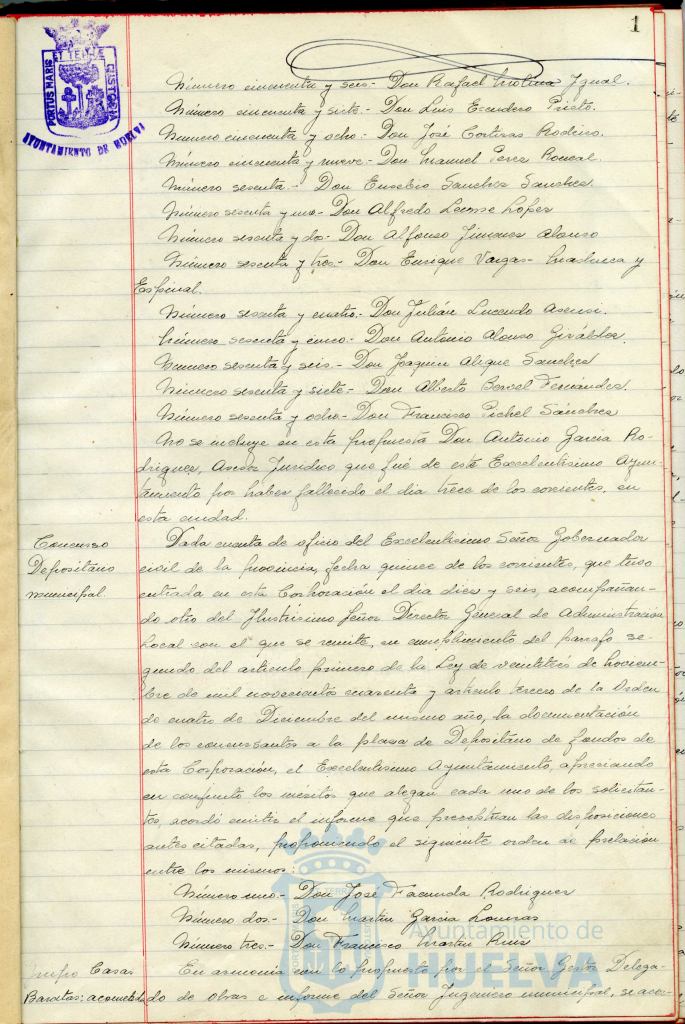 1
PORTUS MARIS
ET TERRE
CUSTODIA
AYUNTAMIENTO DE HUELVA
Número cincuenta y seis.- Don Rafael Molina Igual.
Número cincuenta y siete.- Don Luis Escudero Prieto.
Número cincuenta y ocho.- Don José Contivas Rodeiro.
Número cincuenta y nueve.- Don Manuel Perez Roncal.
Número sesenta.- Don Eusebio Sanchez Sanchez.
Número sesenta y uno.- Don Alfredo Lopez
Número sesenta y dos.- Don Alfonso Jimenez Alonso
Número sesenta y tres.- Don Enrique Vargas- y
Espinal.
Número sesenta y cuatro.- Don Julián Lucendo Asensi.
Número sesenta y cinco.- Don Antonio Alonso Giráldez.
Número sesenta y seis.- Don Joaquin Alique Sanchez
Número sesenta y siete.- Don Alberto Fernandez.
Número sesenta y ocho.- Don Francisco Pichel Sánchez
No se incluye en esta propuesta Don Antonio Garcia Ro-
driguez, Asesor Juridico que fué de este Excelentisimo Ayun-
tamiento por haber fallecido el dia trece de los corrientes, en
esta ciudad.
Concurso
Depositario
municipal.
Dada cuenta de oficio del Excelentisimo Señor Gobernador
civil de la provincia, fecha quince de los corrientes, que tuvo
entrada en esta Corporación el dia diez y seis, acompañan-
do otro del Ilustrisimo Señor Director General de Administración
Local con el que se remite, en cumplimiento del parrafo se-
gundo del articulo primero de la Ley de veintitrés de Noviem-
bre de mil novecientos cuarenta y articulo tercero de la Orden
de cuatro de Diciembre del mismo año, la documentación
de los concursantes a la plaza de Depositario de fondos de
esta Corporación, el Excelentisimo Ayuntamiento, apreciando
en conjunto los méritos que alegan cada uno de los solicitan-
tes, acordó emitir el informe que prescriben las disposiciones
antes citadas, proponiendo el siguiente orden de prelación
entre los mismos:
Número uno.- Don José Facunda Rodriguez
Número dos.- Don Martin Garcia
Número tres.- Don Francisco Martin Ruiz
Grupo Casas
Baratas: acometida
En armonia con lo propuesto por el Señor Gestor Delega-
do de obras e informe del Señor Ingeniero municipal, se acor-
Ayuntamiento de
HUELVA